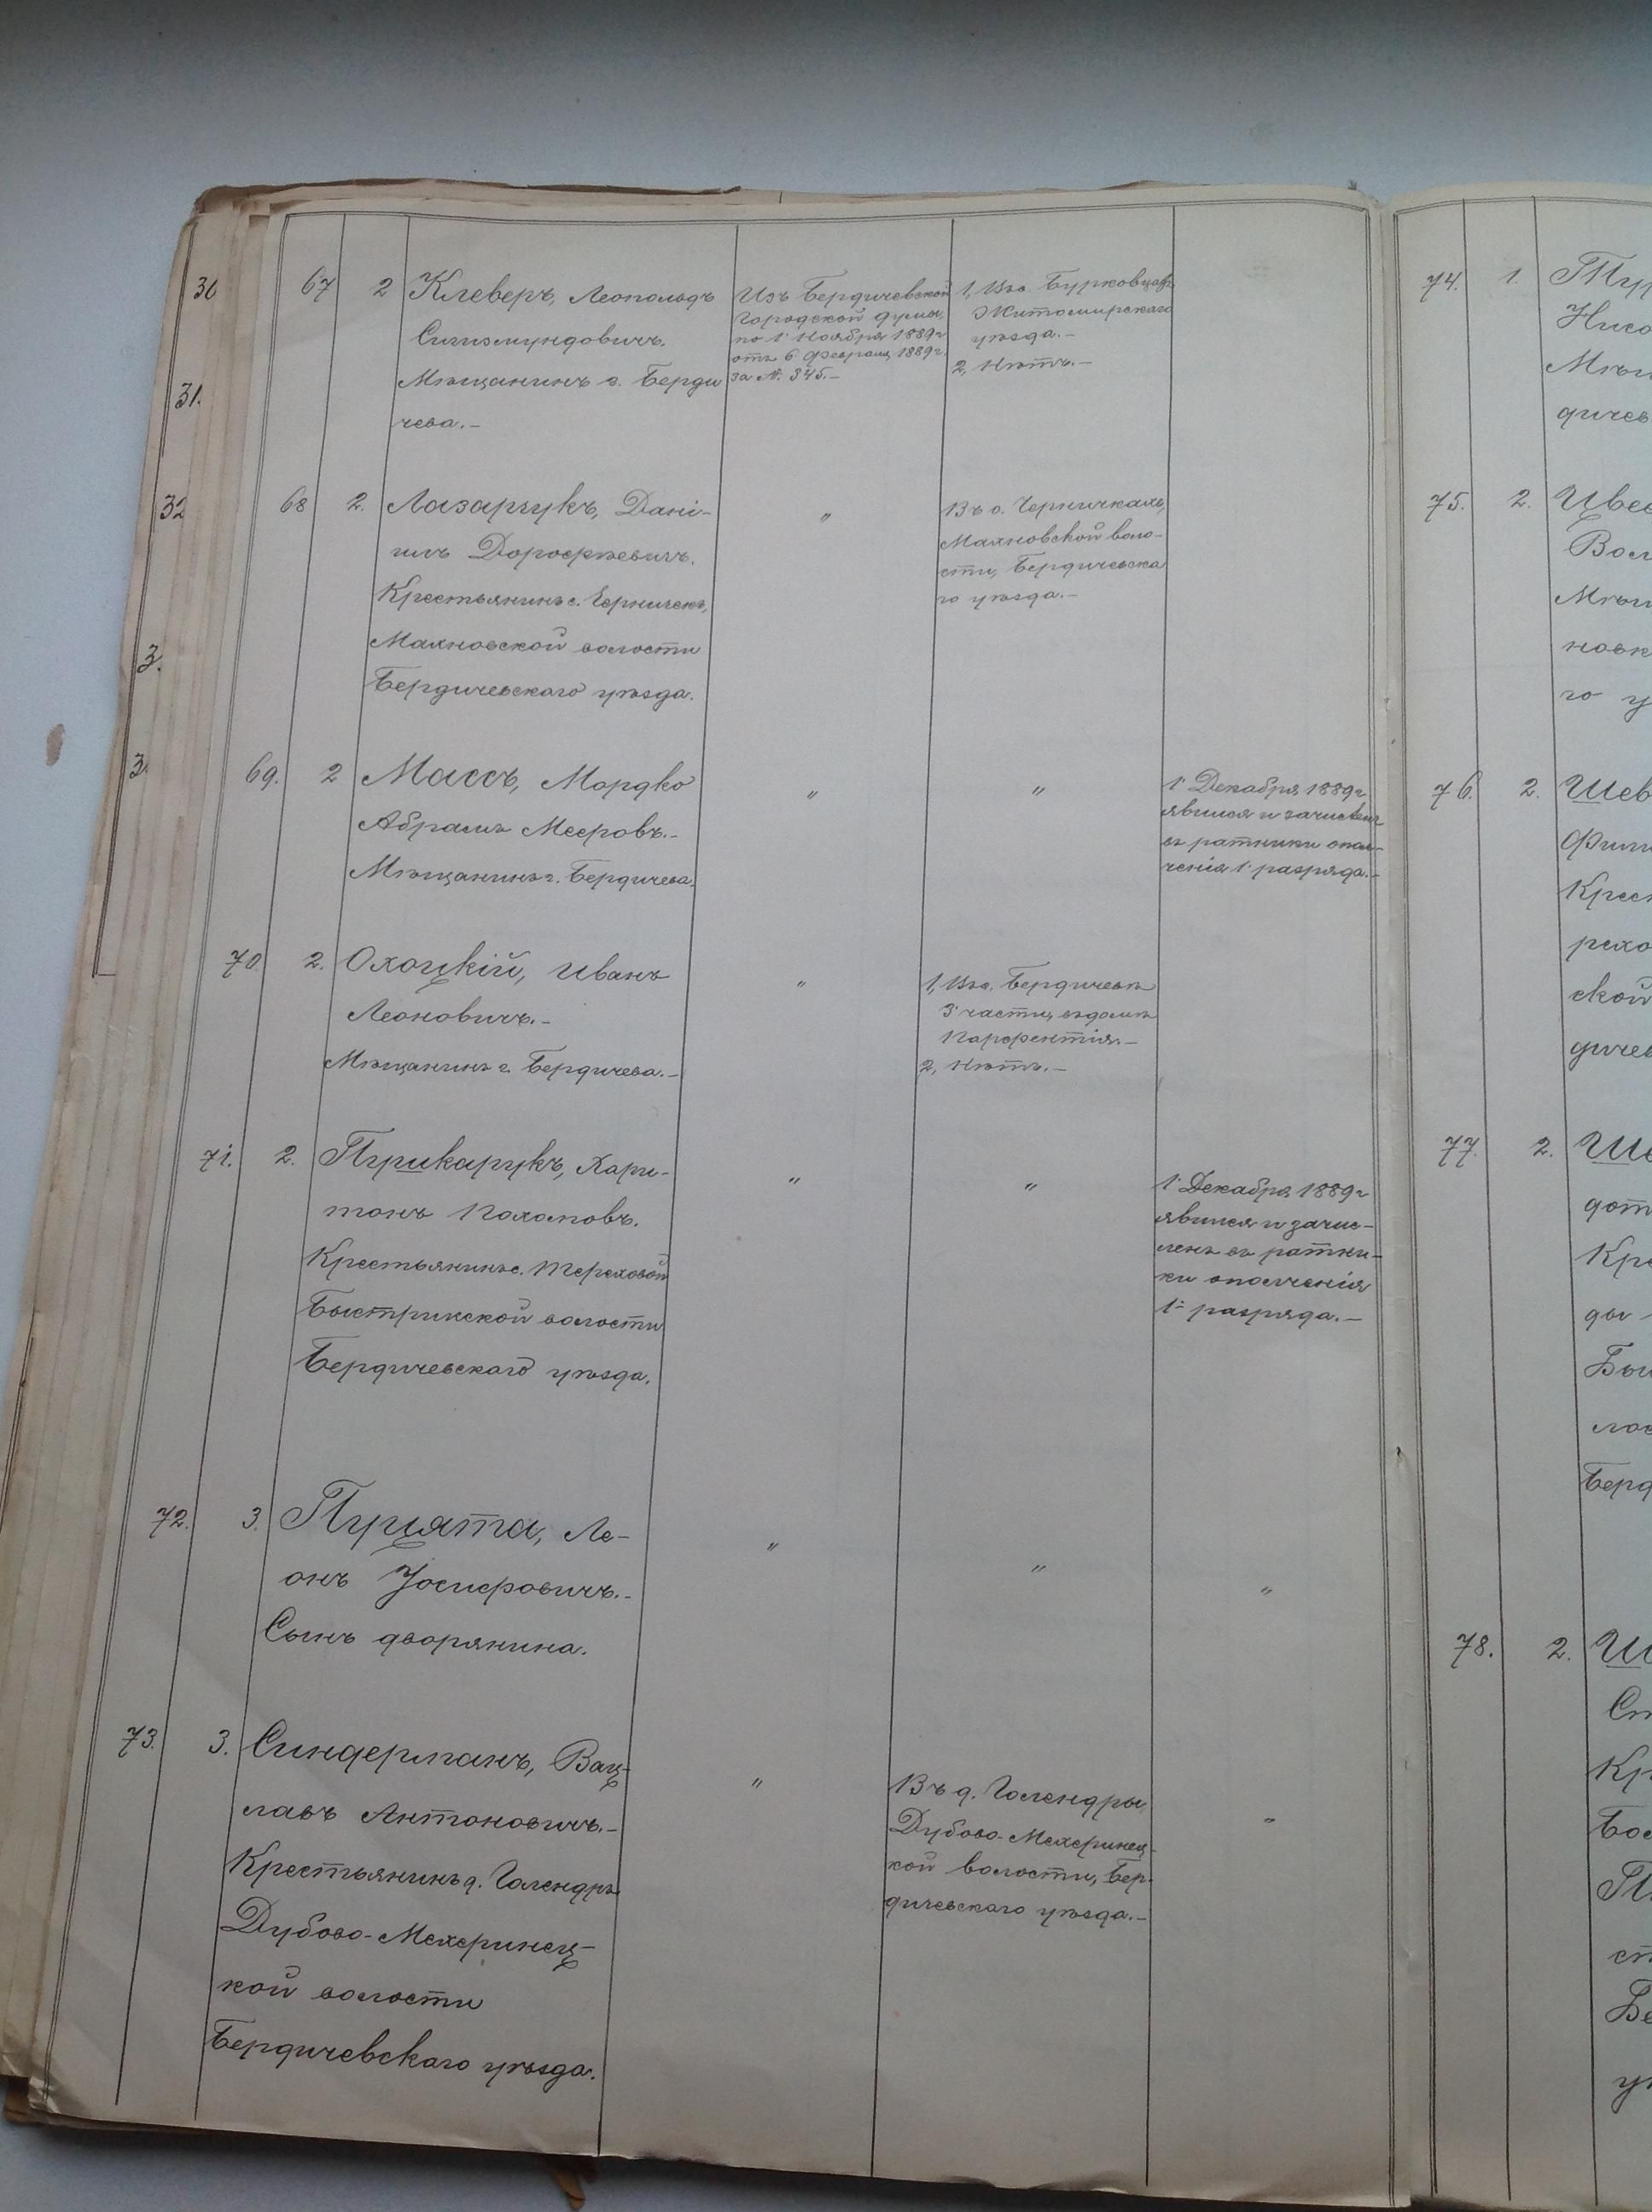 30
31.
32
3.
3.
67 2 Клеверъ, Леопольдъ
Сигизмундовичъ.
Мѣщанинъ г. Берди
чева.-
Изъ Бердичевской
Городской думы,
по 1 Ноября 1889 г
отъ 6 Февраля 1889 г.
за №. 345.-
1, Въ с. Бурковцахъ
Житомирскаго
уѣзда.-
2, Нѣтъ.-
68 2. Лазарчукъ, Дані-
илъ Дорофѣевичъ.
Крестьянинъ с. Черничекъ,
Махновской волости
Бердичевскаго уѣзда.
"
Въ с. Черничкахъ,
Махновской воло-
сти, Бердичевска
го уѣзда.-
69. 2 Массъ, Мордко
Абрамъ Мееровъ.-
Мѣщанинъ г. Бердичева.
"
"
1 Декабря 1889 г
явился и зачисленъ
въ ратники опол-
ченія 1 разряда.-
70 2. Охоцкій, Иванъ
Леоновичъ.-
Мѣщанинъ г. Бердичева.-
"
1, Въ г. Бердичевѣ
3 части, въ домѣ
Парфентія.-
2, Нѣтъ.-
71. 2. Пушкарукъ, Хари-
тонъ Пахомовъ.
Крестьянинъ с. Тереховой
Быстрикской волости
Бердичевскаго уѣзда.
"
"
1 Декабря 1889 г
явился и зачис-
ленъ въ ратни-
ки ополченія
1- разряда.-
72. 3. Пуцята, Ле-
онъ Іосифовичъ.-
Сынъ дворянина.
"
"
"
73. 3. Синдерманъ, Вац-
лавъ Антоновичъ.-
Крестьянинъ д. Голендръ
Дубово-Мехеринец-
кой волости
Бердичевскаго уѣзда.
"
Въ д. Голендры
Дубово-Мехеринец-
кой волости, Бер-
дичевскаго уѣзда.-
"
74. 1.
Мѣщ
дичев
75. 2. Цвес
Вол
Мѣщ
новк
го у
76. 2. Шев
Фили
Крест
рехо
ской
дичев
77. 2. Ше
дот
Кре
ды
Бы
лос
Берд
78. 2. Ш
Ст
Кр
Бе